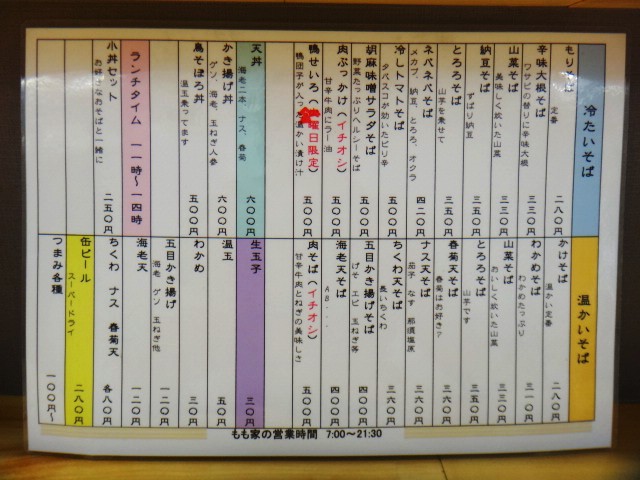 冷たいそば
もりそば 定番 二八〇円
辛味大根そば ワサビの替りに辛味大根 三三〇円
山菜そば 美味しく炊いた山菜 三三〇円
納豆そば ずばり納豆 三五〇円
とろろそば 山芋を乗せて 三五〇円
ネバネバそば メカブ、納豆、とろろ、オクラ 四二〇円
冷しトマトそば タバスコが効いたピリ辛 三五〇円
胡麻味噌サラダそば 野菜たっぷりヘルシーそば 五〇〇円
肉ぶっかけ(イチオシ) 甘辛牛肉にラー油 五〇〇円
鴨せいろ(曜日限定) 鴨団子が入った温かい漬け汁 五〇〇円
天丼 海老二本、ナス、春菊 六〇〇円
かき揚げ丼 ゲソ、海老、玉ねぎ人参 六〇〇円
鳥そぼろ丼 温玉乗ってます 五〇〇円
ランチタイム 一一時〜一四時
小丼セット お好きなおそばと一緒に 二五〇円
温かいそば
かけそば 温かい定番 二八〇円
わかめそば わかめたっぷり 三一〇円
山菜そば おいしく炊いた山菜 三三〇円
とろろそば 山芋です 三五〇円
春菊天そば 春菊はお好き? 三六〇円
ナス天そば 茄子 なす 那須塩原 三六〇円
ちくわ天そば 長いちくわ 三六〇円
五目かき揚げそば げそ エビ 玉ねぎ等 四〇〇円
海老天そば AB... 四〇〇円
肉そば(イチオシ) 甘辛牛肉とねぎの美味しさ 五〇〇円
生玉子 三〇円
温玉 五〇円
わかめ 三〇円
五目かき揚げ 海老 ゲソ 玉ねぎ他 一二〇円
海老天 一二〇円
ちくわ ナス 春菊天 各八〇円
缶ビール スーパードライ 二八〇円
つまみ各種 一〇〇円〜
もも家の営業時間 7:00〜21:30